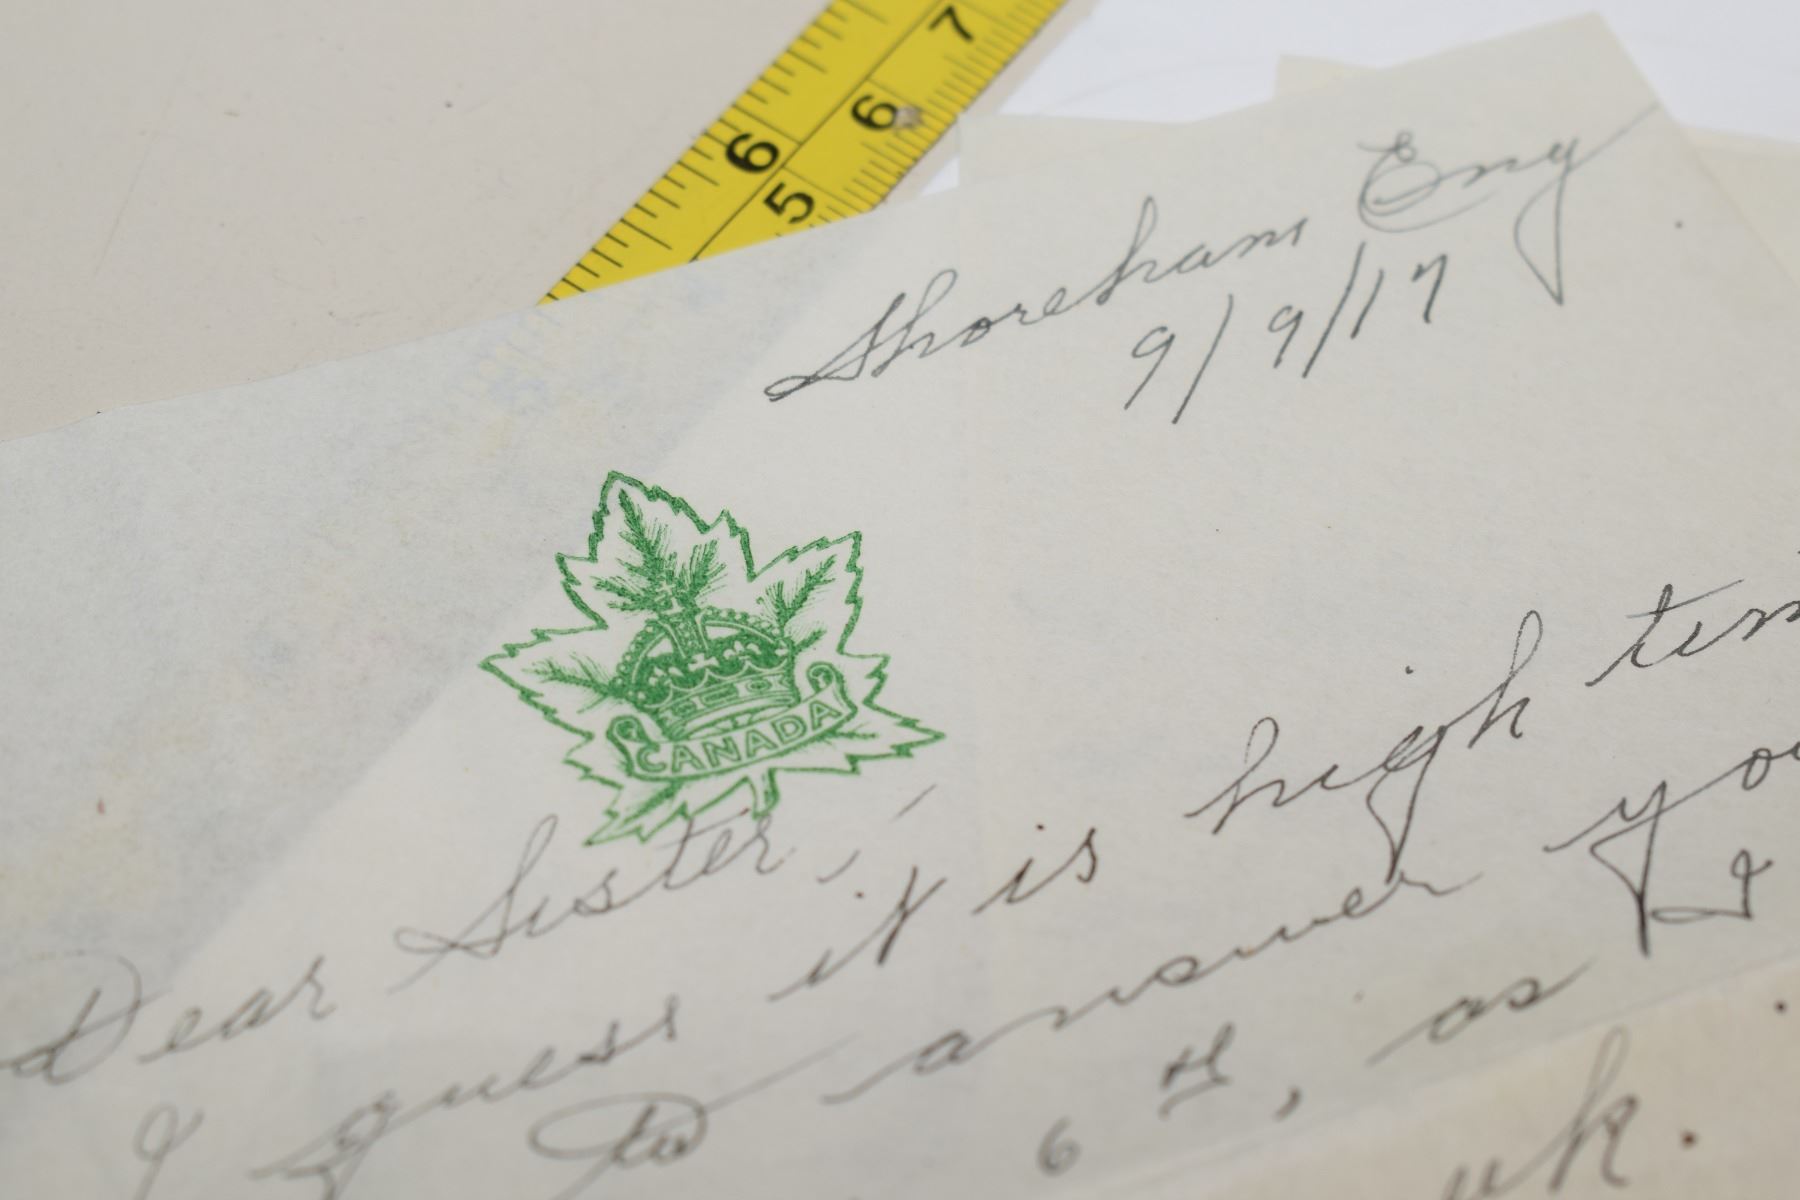 7
6
6
5
Shoreham Eng
9/9/17
CANADA
Dear Sister,
I guess it is high
to answer
6th, as I